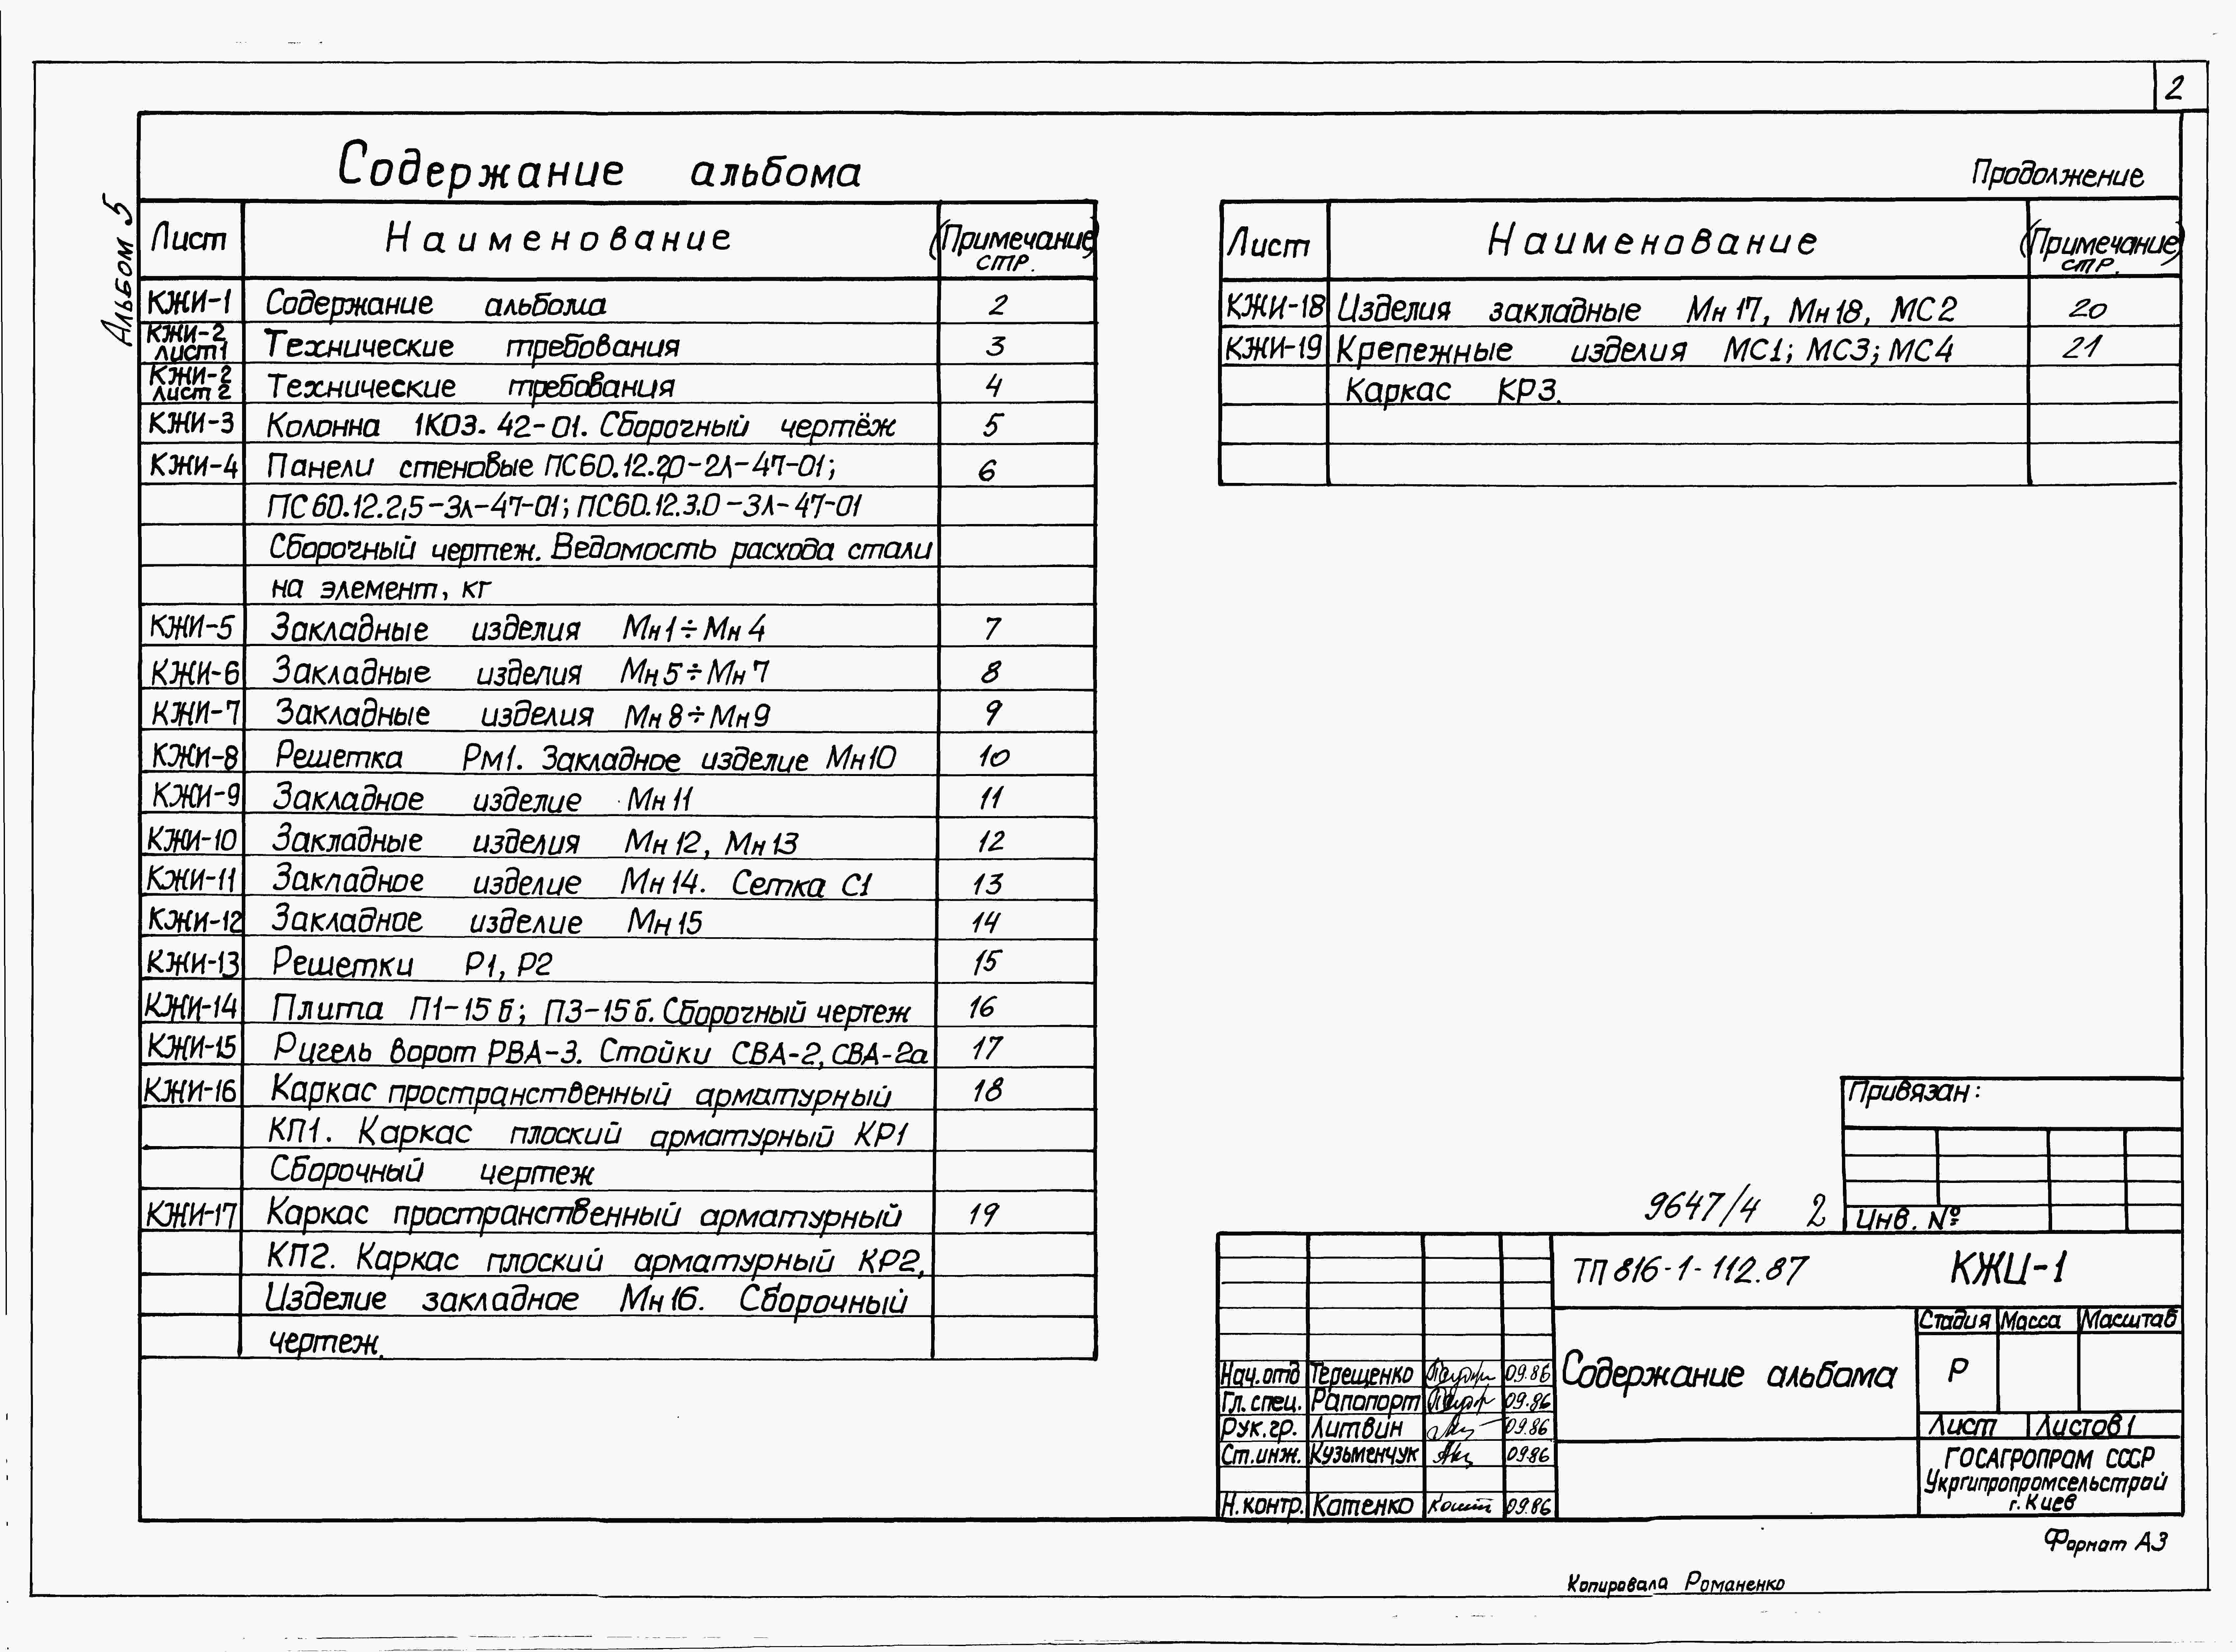 2
Альбом 5
Содержание альбома
Лист Наименование (Примечание) стр.
КЖИ-1 Содержание альбома 2
КЖИ-2 лист 1 Технические требования 3
КЖИ-2 лист 2 Технические требования 4
КЖИ-3 Колонна 1К03.42-01. Сборочный чертёж 5
КЖИ-4 Панели стеновые ПС60.12.2,0-2Л-47-01; 6
ПС60.12.2,5-3Л-47-01; ПС60.12.3.0-3Л-47-01
Сборочный чертеж. Ведомость расхода стали
на элемент, кг
КЖИ-5 Закладные изделия Мн1÷Мн4 7
КЖИ-6 Закладные изделия Мн5÷Мн7 8
КЖИ-7 Закладные изделия Мн8÷Мн9 9
КЖИ-8 Решетка Рм1. Закладное изделие Мн10 10
КЖИ-9 Закладное изделие Мн11 11
КЖИ-10 Закладные изделия Мн12, Мн13 12
КЖИ-11 Закладное изделие Мн14. Сетка С1 13
КЖИ-12 Закладное изделие Мн15 14
КЖИ-13 Решетки Р1, Р2 15
КЖИ-14 Плита П1-15б; П3-15б. Сборочный чертеж 16
КЖИ-15 Ригель ворот РВА-3. Стойки СВА-2, СВА-2а 17
КЖИ-16 Каркас пространственный арматурный 18
КП1. Каркас плоский арматурный КР1
Сборочный чертеж
КЖИ-17 Каркас пространственный арматурный 19
КП2. Каркас плоский арматурный КР2,
Изделие закладное Мн16. Сборочный
чертеж.
Продолжение
Лист Наименование (Примечание) стр.
КЖИ-18 Изделия закладные Мн17, Мн18, МС2 20
КЖИ-19 Крепежные изделия МС1; МС3; МС4 21
Каркас КР3.
Привязан:
Инв. №
9647/4 2
ТП 816-1-112.87 КЖИ-1
Стадия Масса Масштаб
Содержание альбома Р
Лист Листов 1
ГОСАГРОПРОМ СССР
Укргипропромсельстрой
г. Киев
Нач.отд Терещенко 09.86
Гл.спец. Рапопорт 09.86
Рук.гр. Литвин 09.86
Ст.инж. Кузьменчук 09.86
Н.контр. Катенко 09.86
Формат А3
Копировала Романенко